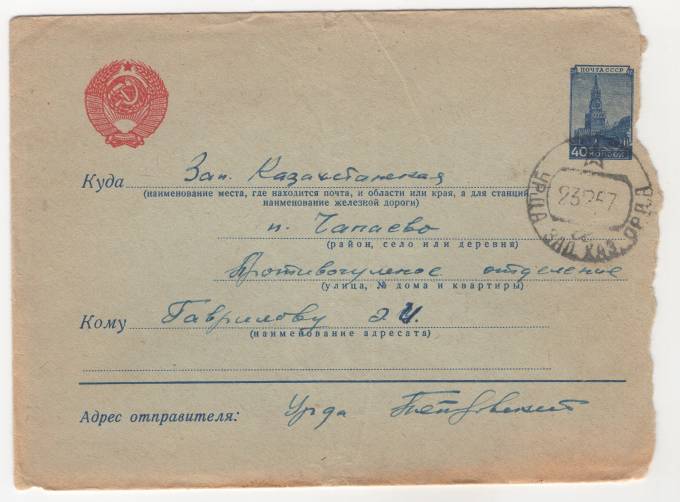 ПОЧТА СССР
40 КОПЕЕК
УРДА ЗАП. КАЗ. ОРДА
23 2 57
Куда Зап. Казахстанская
(наименование места, где находится почта, и области или края, а для станция
наименование железной дороги)
п. Чапаево
(район, село или деревня)
Противочумное отделение
(улица, № дома и квартиры)
Кому Гаврилову Э.И.
(наименование адресата)
Адрес отправителя: Урда